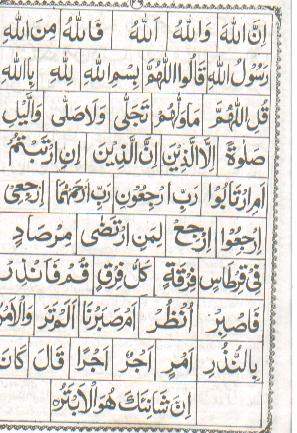 اِنَّ اللهَ وَاللهُ اَللهُ فَاللهُ مِنَ اللهِ
رَسُوْلُ اللهِ قَالُوا اللّٰهُمَّ بِسْمِ اللهِ لِلّٰهِ بِاللهِ
قُلِ اللّٰهُمَّ مَاوَلّٰهُمْ تَجَلّٰى وَلَاصَلّٰى وَالَّيْلِ
صَلٰوةَ اِلَّا الَّذِيْنَ اِنَّ الَّذِيْنَ اِنِ ارْتَبْتُمْ
اَمِ ارْتَابُوْا رَبِّ ارْجِعُوْنِ رَبِّ ارْحَمْهُمَا اِرْجِعِىْ
اِرْجِعُوْا اِرْجِعْ لِمَنِ ارْتَضٰى مِرْصَادٍ
فِىْ قِرْطَاسٍ فِرْقَةٍ كُلُّ فِرْقٍ قُمْ فَاَنْذِرْ
فَاصْبِرْ اُنْظُرْ اَمْ صَبَرْنَا اَلَمْ تَرَ وَالْاَمْرُ
بِالنُّذُرِ اَمْرٍ اَجْرٌ اَجْرًا قَالَ كَانَ
اِنَّ شَانِئَكَ هُوَ الْاَبْتَرُ